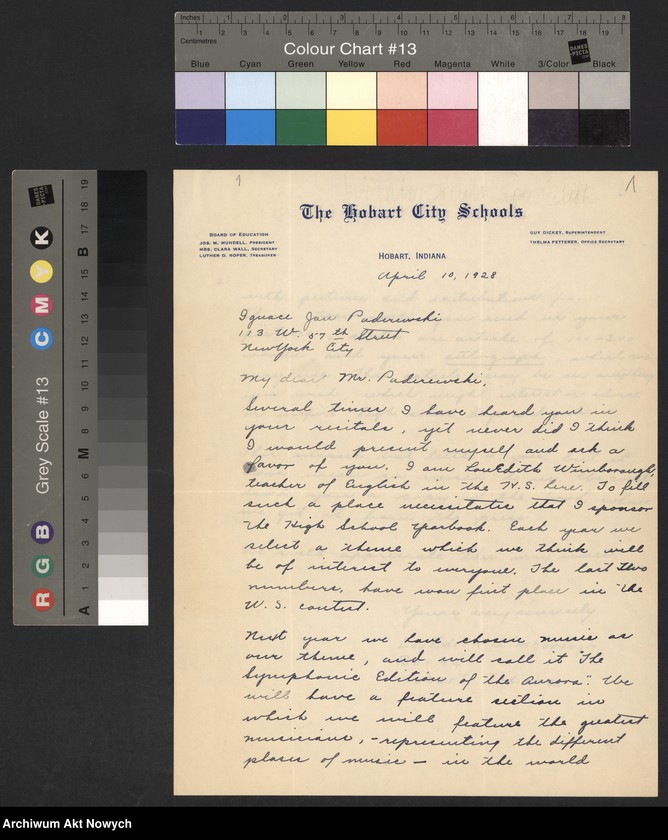 Inches 1 2 3 4 5 6 7 8
Centimetres 1 2 3 4 5 6 7 8 9 10 11 12 13 14 15 16 17 18 19
Colour Chart #13
DANES PICTA
Blue Cyan Green Yellow Red Magenta White 3/Color Black
Grey Scale #13
R G B C M Y K
A 1 2 3 4 5 6 M 8 9 10 11 12 13 14 15 B 17 18 19
1
The Hobart City Schools
BOARD OF EDUCATION
JOS. M. MUNDELL, PRESIDENT
MRS. CLARA WALL, SECRETARY
LUTHER D. ROPER, TREASURER
GUY DICKEY, SUPERINTENDENT
THELMA FETTERER, OFFICE SECRETARY
HOBART, INDIANA
April 10, 1928
Ignace Jan Paderewski
113 W. 57 th Street
New York City
My dear Mr. Paderewski,
Several times I have heard you in
your recitals, yet never did I think
I would present myself and ask a
favor of you. I am LouEdith Wimborough,
teacher of English in the H.S. here. To fill
such a place necessitates that I sponsor
the High School Yearbook. Each year we
select a theme which we think will
be of interest to everyone. The last two
numbers, have won first place in the
U. S. contest.
Next year we have chosen music as
our theme, and will call it "The
Symphonic Edition of the Aurora". We
will have a feature section in
which we will feature the greatest
musicians, - representing the different
phases of music — in the world
Archiwum Akt Nowych